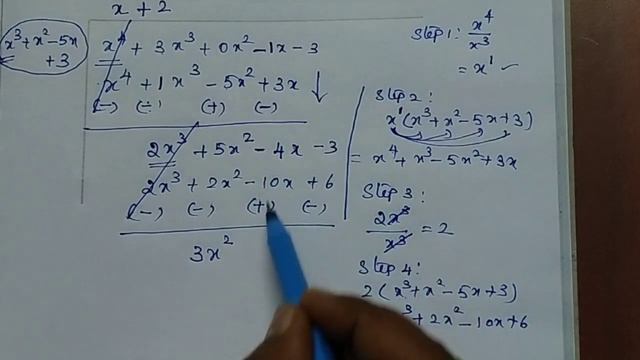 x + 2
x³+x²-5x
+3
x⁴ + 3x³ + 0x² - 1x - 3
x⁴ + 1x³ - 5x² + 3x
(-) (-) (+) (-)
2x³ + 5x² - 4x - 3
2x³ + 2x² - 10x + 6
(-) (-) (+) (-)
3x²
Step 1: x⁴/x³
= x¹
Step 2:
x¹(x³+x²-5x+3)
= x⁴+x³-5x²+3x
Step 3:
2x³/x³ = 2
Step 4:
2(x³+x²-5x+3)
³+2x²-10x+6